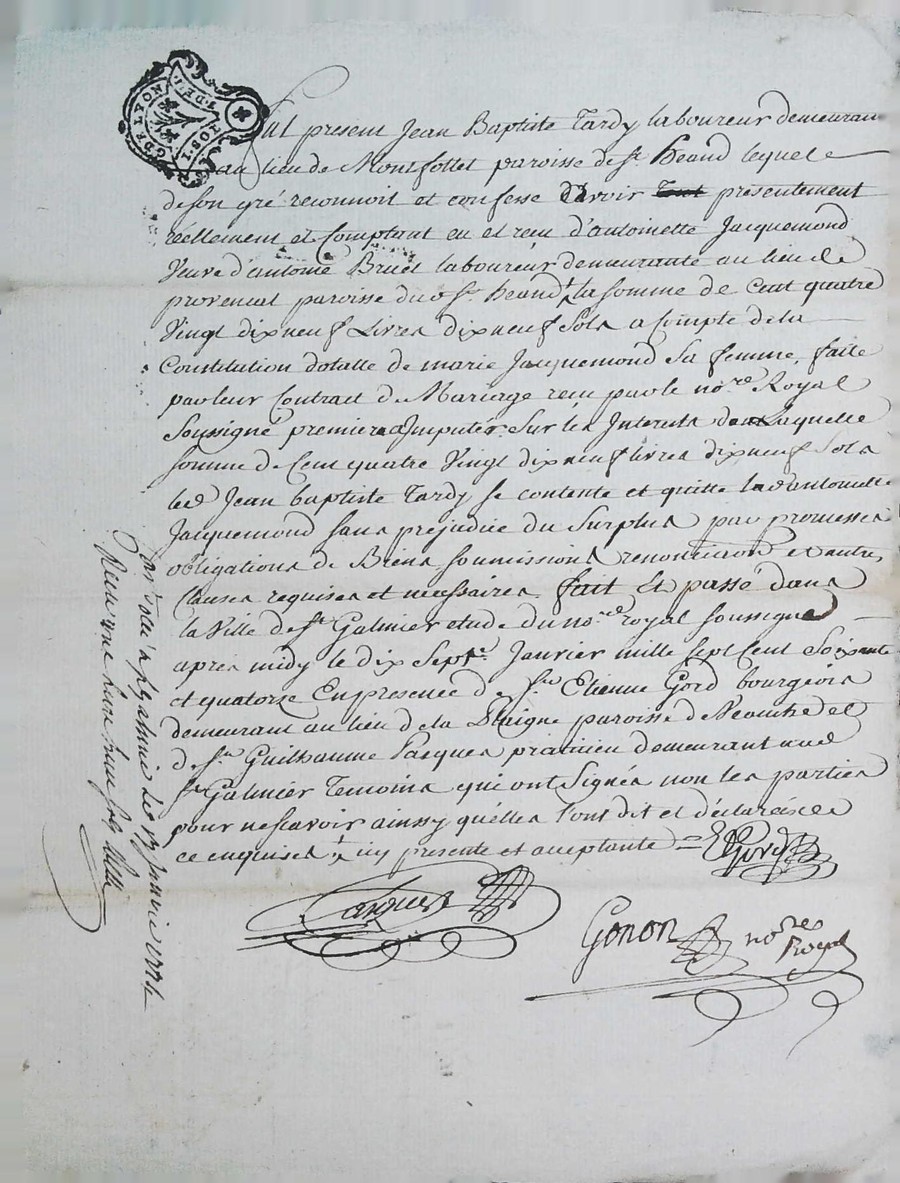 G. DE LYON
1. DE. I.
HOS. I
Fut present Jean Baptiste Tardy laboureur demeurant
au lieu de Montfollet paroisse de St. heand lequel
de son gré reconnoit et confesse avoir présentement
réellement et Comptant eu et recu d'antoinette Jacquemond
Veuve d'antoine Bruel laboureur demeurante au lieu de
provencal paroisse dud St. heand + la somme de Cent quatre
Vingt dix neuf Livres dix neuf Sols a Compte de la
Constitution dotalle de marie Jacquemond Sa femme, faite
par leur Contrat de Mariage recu par le nore. Royal
Soussigné Imputér Sur les Interests de Laquelle
somme de Cent quatre Vingt dix neuf livres dix neuf Sols
led Jean baptiste Tardy se contente et quitte lad antoinette
Jacquemond sans préjudice du Surplus par promesses
obligations de Biens soumissions renonciaon et autres
Clauses requises et nécessaires, fait Et passé dans
la Ville de St Galmier etude du nore. royal soussigné
après midy le dix Sept.e Janvier mille sept Cent Soixante
et quatorse En presence de Sr. Etienne Gord bourgeois
demeurant au lieu de la paroisse de et
de Sr. Guilhaume Pasques praticien demeurant aud
St. Galmier Temoins qui ont Signés non les parties
pour ne scavoir ainssy quelles l'ont dit et déclaré de
ce enquises + icy presente et acceptante = EGord
Pasques
Gonon nore
Royal
a St galmier le 17 janvier 1774
Recu